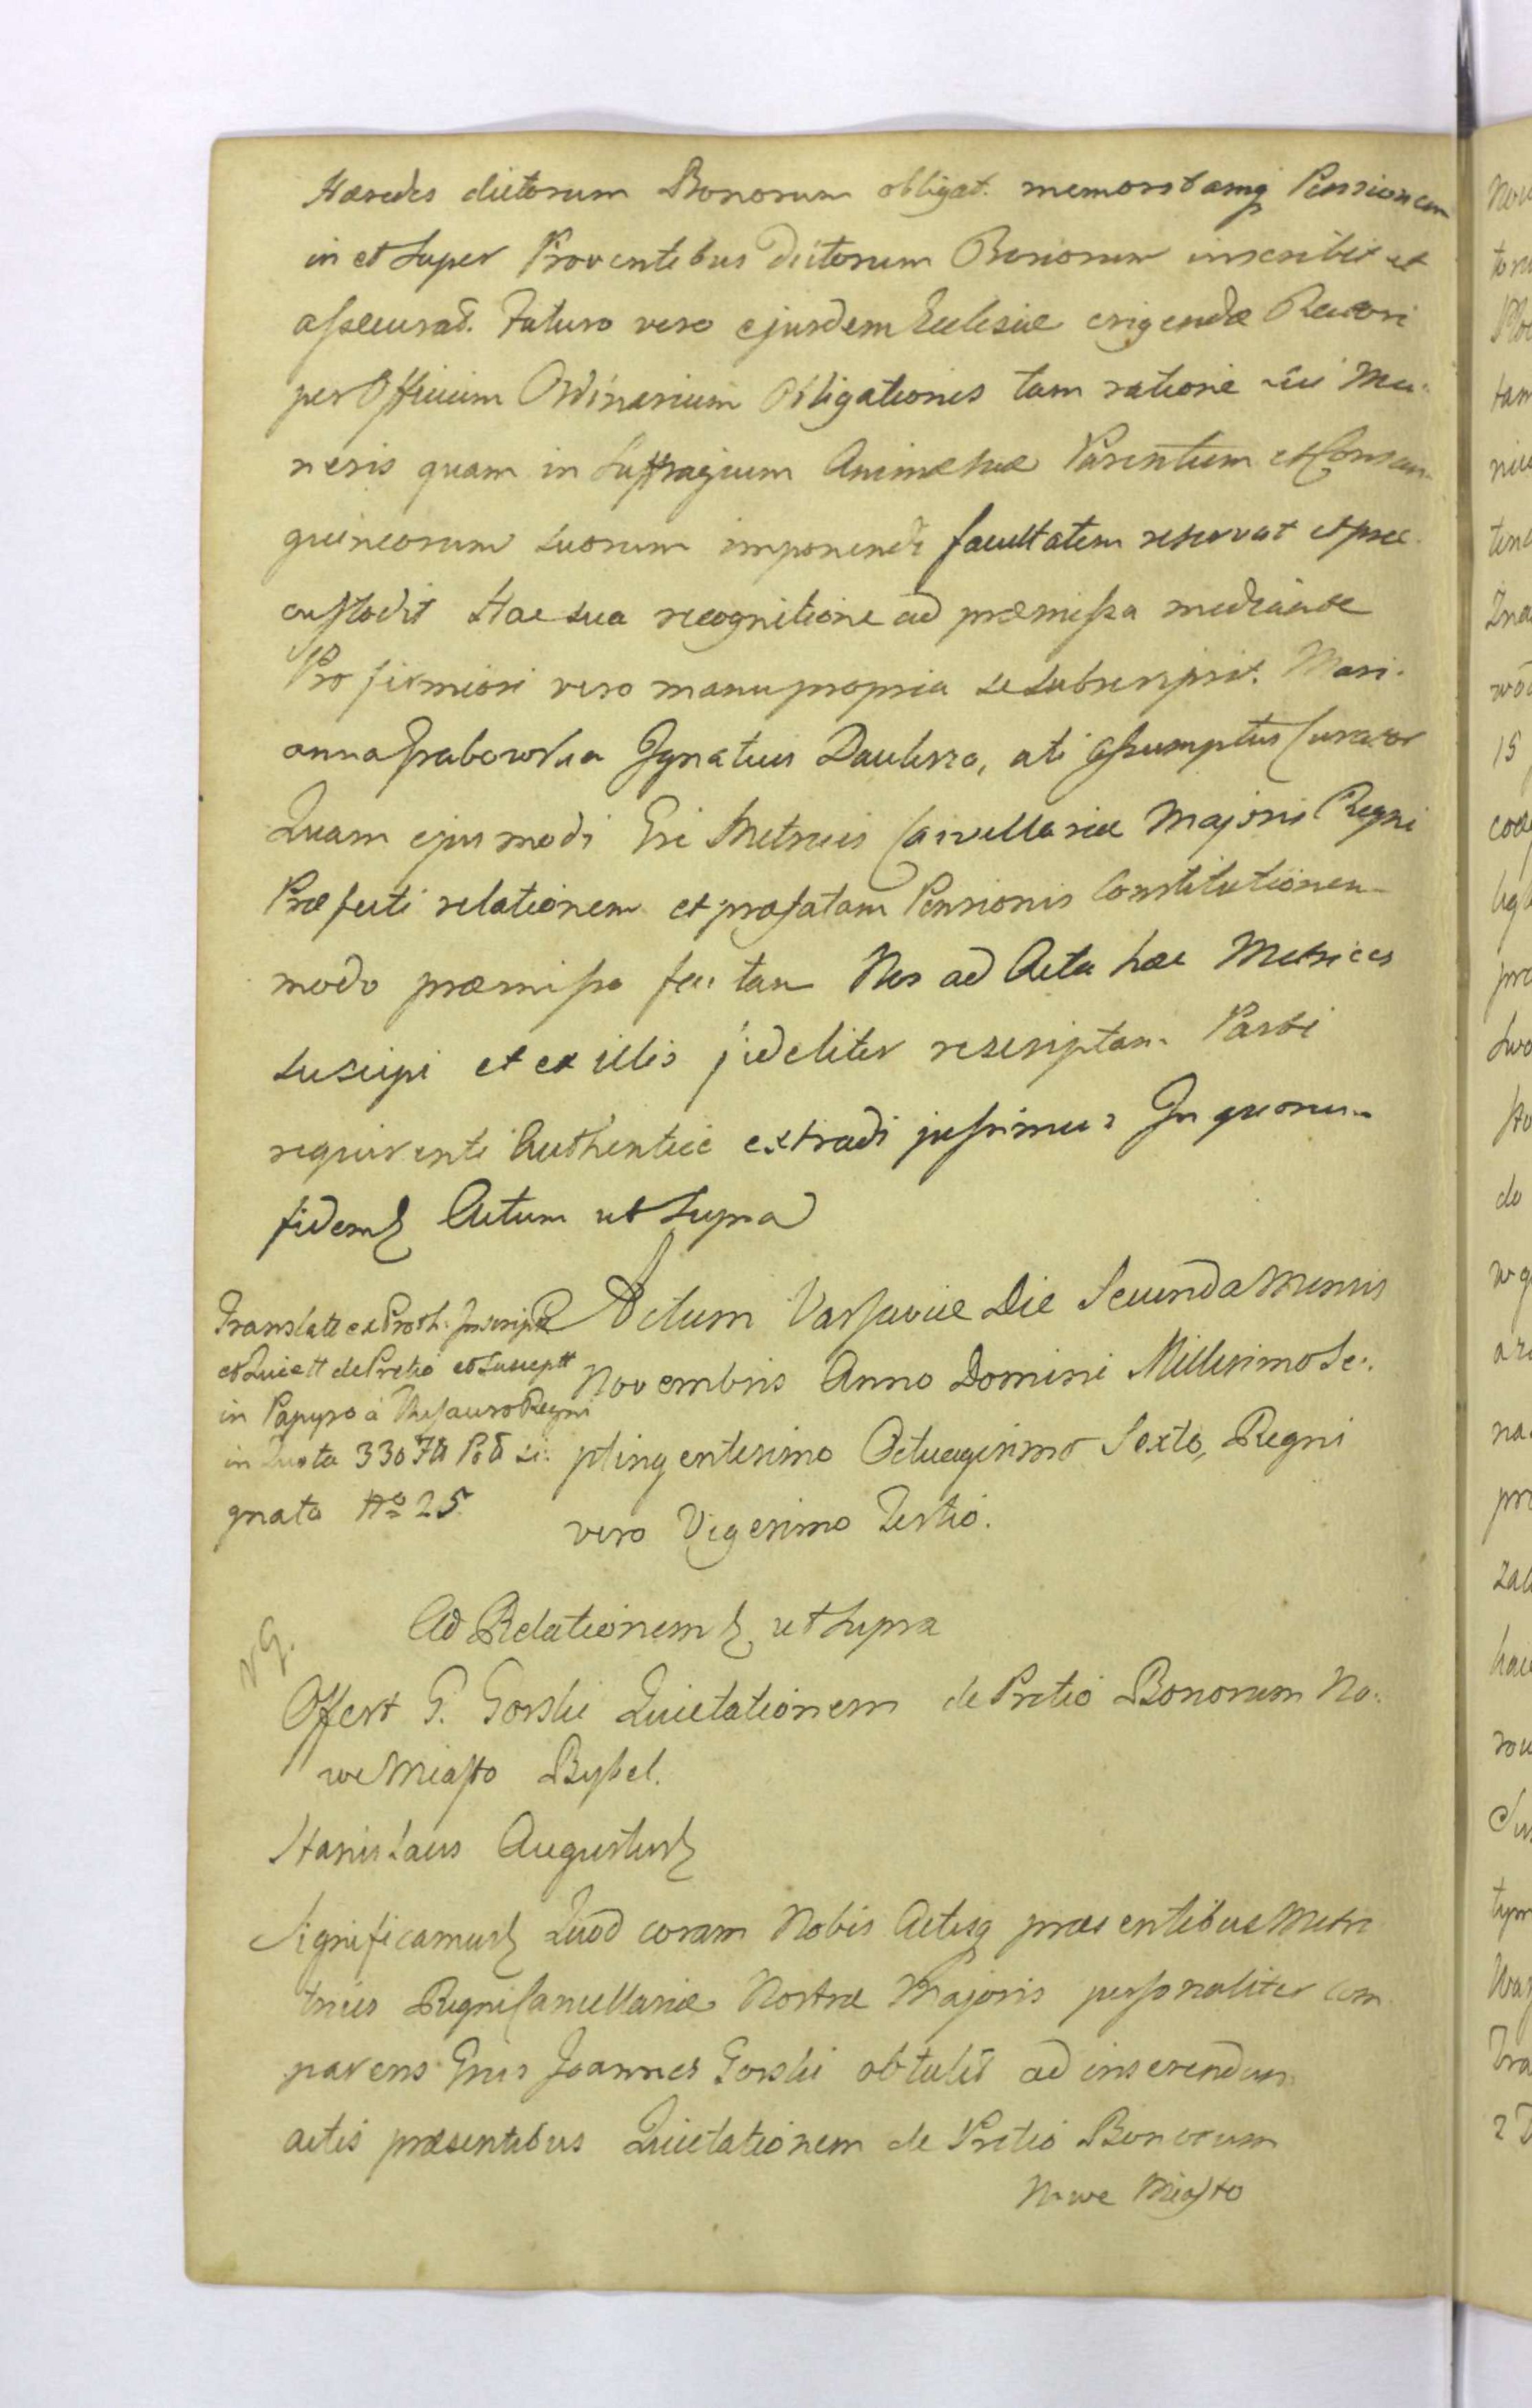 Hæredes dictorum Bonorum obligat. memoratamq Pensionem
in et super Proventibus dictorum Bonorum inscribit et
assecurat. Futuro vero ejusdem Ecclesiæ erigendæ Rectori
per Officium Ordinarium Obligationes tam ratione sui Mu-
neris quam in suffragium Animæ suæ Parentum et Consan-
guineorum suorum imponendi facultatem reservat et præ-
custodit Hac sua recognitione ad præmissa mediante
Pro firmiori vero manu propria se subscripsit. Mari-
anna Grabowska Ignatius uti Assumptus Curator
Quam ejusmodi Gsi Metrices Cancellariæ Majoris Regni
Præfecti relationem et præfatam Pensionis Constitutionem
modo præmisso factam Nos ad Acta hæc Metrices
suscipi et ex illis fideliter rescriptam Parti
requirenti Authentice extradi jussimus In quorum
fidem Actum ut supra
Actum Varsaviæ Die Secunda Mensis
Novembris Anno Domini Millesimo Se:
ptingentesimo Octuagesimo Sexto, Regni
vero Vigesimo Tertio.
Translatt ex Proth. Inscript
et Quiett de Pretio et Susceptt
in Papyro à Thesauro Regni
in Quota 330 si:
gnata No 25.
Ad Relationem ut supra
Offert G. Gorski Quietationem de Pretio Bonorum No:
we Miasto
Stanislaus Augustus
Significamus Quod coram Nobis Actisq præsentibus Metri
trices Regni Cancellariæ Nostræ Majoris personaliter com
parens Gnus Joannes Gorski obtulit ad inserendum
actis præsentibus Quietationem de Pretio Bonorum
Nowe Miasto